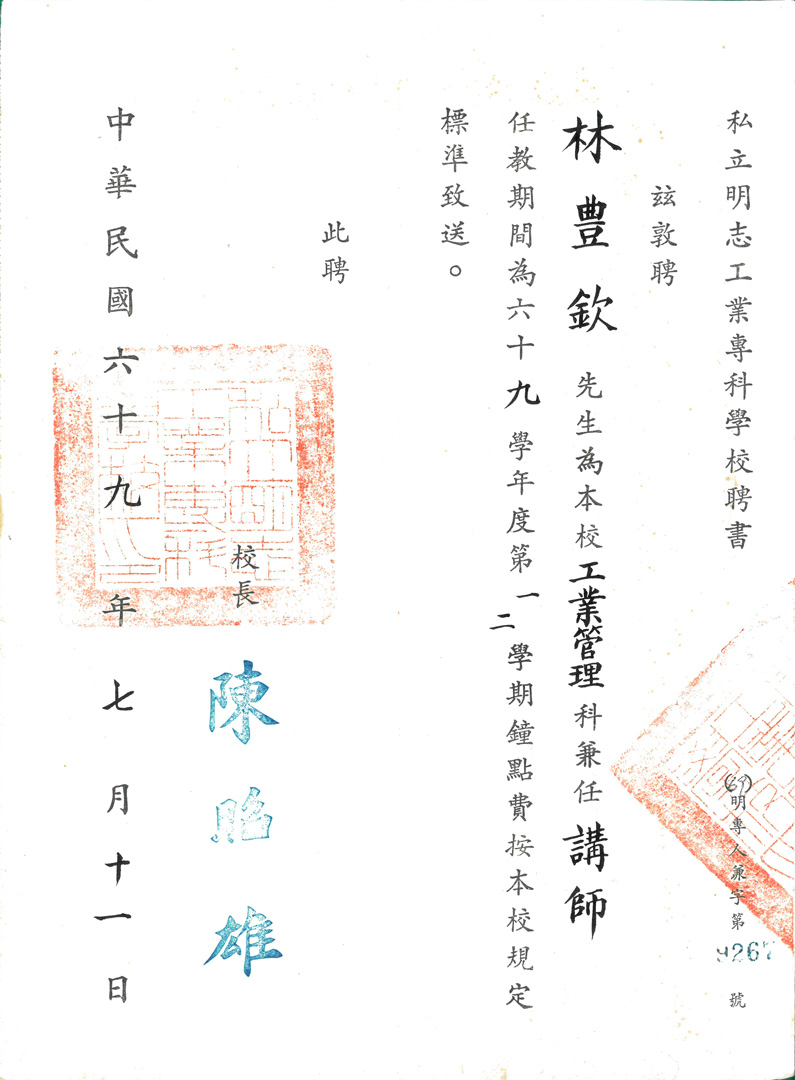 私立明志工業專科學校聘書
(69)明專人兼字第9267號
茲敦聘
林豊欽先生為本校工業管理科兼任講師
任教期間為六十九學年度第一二學期鐘點費按本校規定
標準致送。
此聘
校長 陳昭雄
中華民國六十九年七月十一日